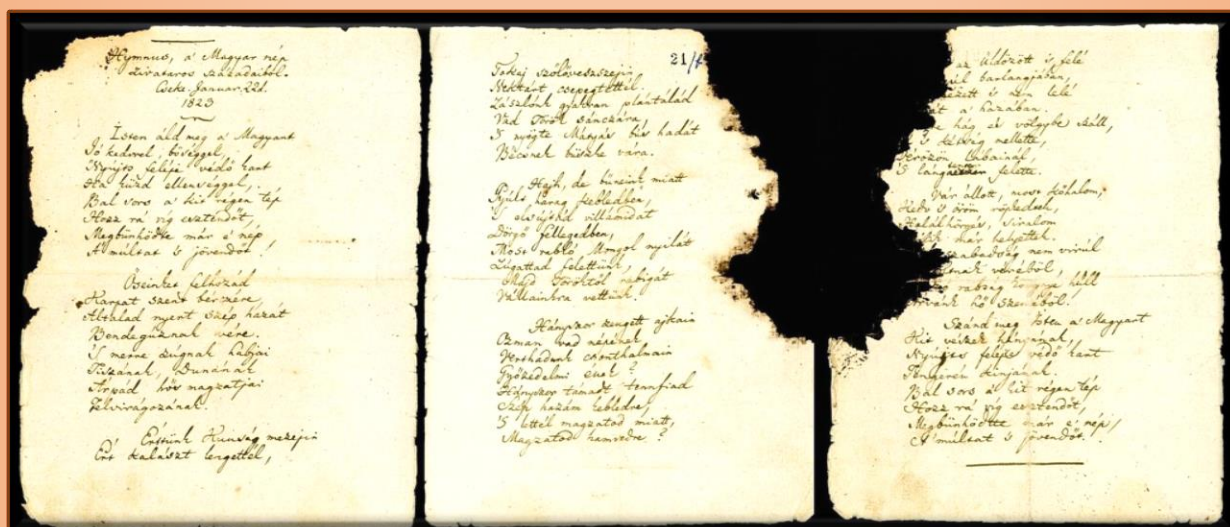 Hymnus, a' Magyar nép
zivataros századaiból.
Cseke. Januar. 22d.
1823
Isten áld meg a' Magyart
Jó kedvvel, bőséggel,
Nyújts feléje védő kart
Ha küzd ellenséggel,
Bal sors a' kit régen tép
Hozz rá víg esztendőt,
Megbűnhödte már e' nép
A' múltat 's jövendőt!
Őseinket felhozád
Kárpát szent bérczére,
Általad nyert szép hazát
Bendegúznak vére.
'S merre zúgnak habjai
Tiszának, Dunának
Árpád hős magzatjai
Felvirágozának.
Értünk Kunság mezejin
Ért kalászt lengettél,
21/
Tokaj szőlővesszejin
Nektárt csepegtettél.
Zászlónk gyakran plántálád
Vad török sánczára
'S nyögte Mátyás bús hadát
Bécsnek büszke vára.
Hajh, de bűneink miatt
Gyúlt harag kebledben,
'S elsújtád villámidat
Dörgő fellegedben,
Most rabló Mongol nyilát
Zúgattad felettünk,
Majd töröktől rabigát
Vállainkra vettünk.
Hányszor zengett ajkain
Ozman vad népének
Vert hadunk csonthalmain
Győzedelmi ének?
Hányszor támadt tennfiad
Szép hazám kebledre,
'S lettél magzatod miatt,
Magzatod hamvvedre?
az üldözött 's felé
barlangjában,
's nem lelé
a' hazában.
hág és völgybe száll,
's kétség mellette,
Vérözön lábainál,
'S lángtenger felette.
Vár állott, most kőhalom,
Kedv 's öröm röpkedtek,
Halálhörgés, siralom
már helyettek.
szabadság nem virúl
véréből,
rabság könnye hull
hő szeméből.
Szánd meg Isten a' Magyart
Kit vészek hányának,
Nyújts feléje védő kart
Tengerén kínjának.
Bal sors a' kit régen tép
Hozz rá víg esztendőt,
Megbűnhödte már e' nép
A' múltat 's jövendőt!